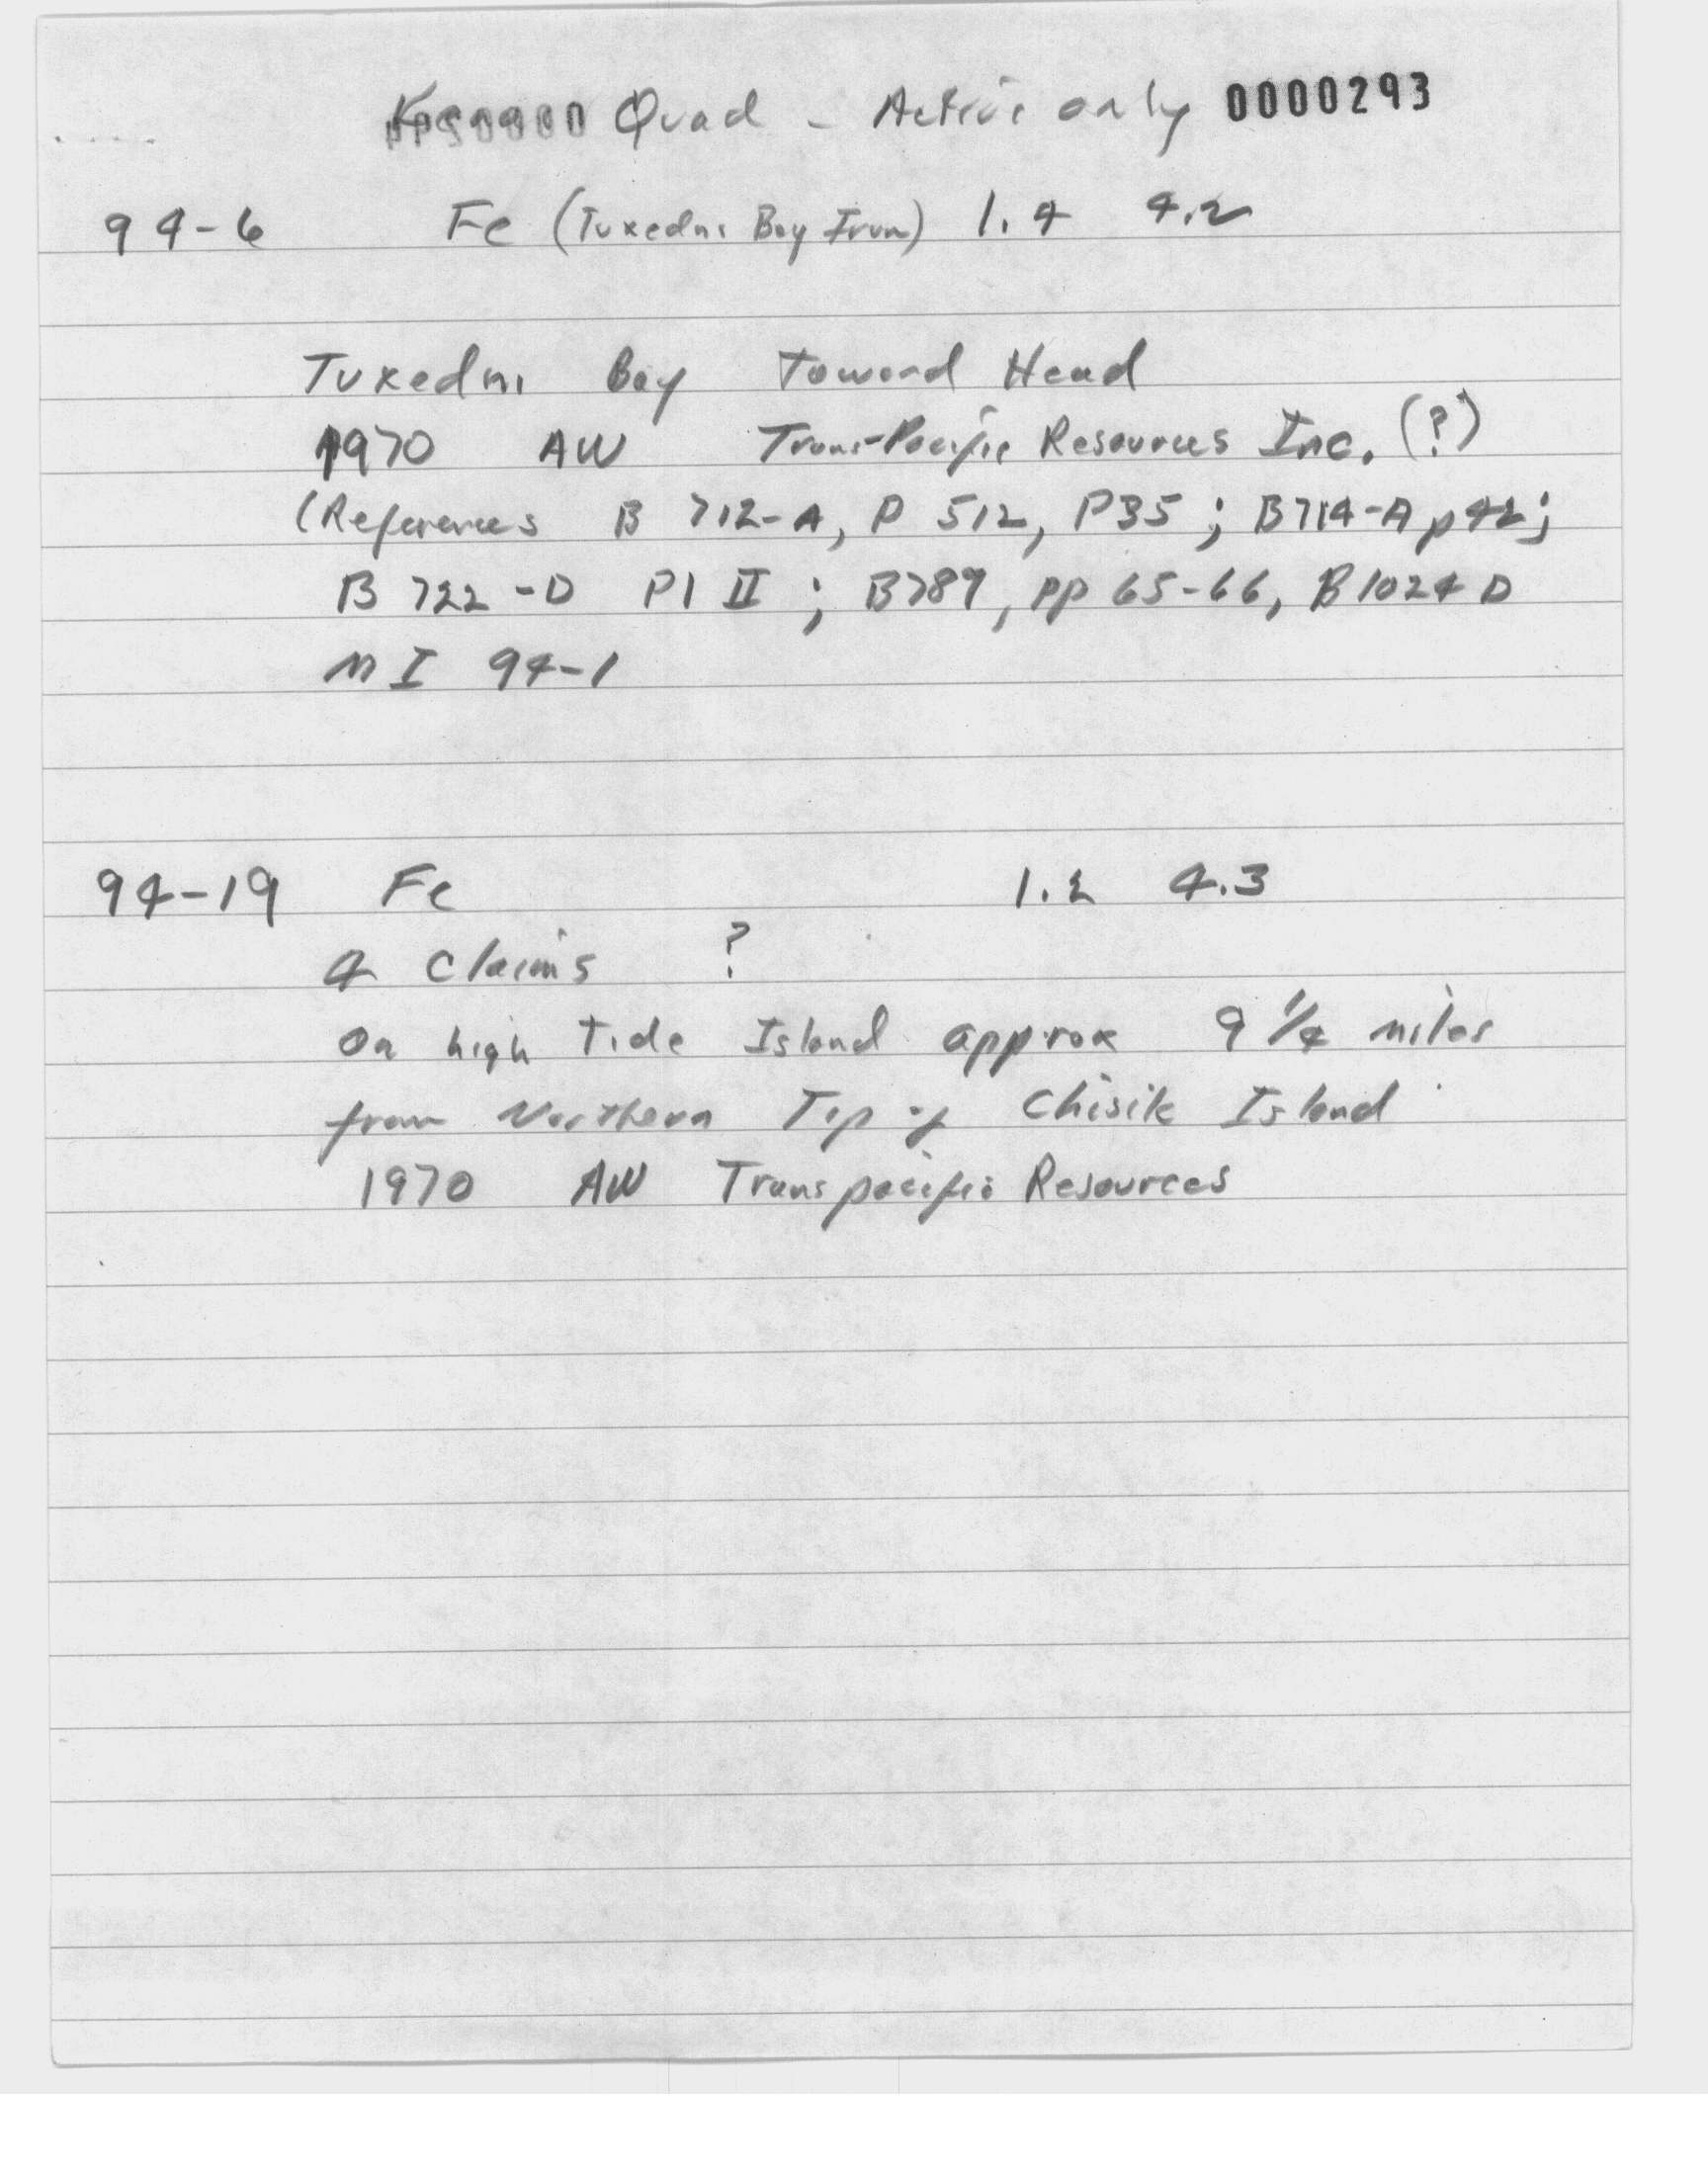 Kenai Quad - Active only 0000293
94-6 Fe (Tuxedni Bay Iron) 1.4 4.2
Tuxedni Bay Toward Head
1970 AW Trans-Pacific Resources Inc. (?)
(References B 712-A, P 512, P35; B714-A p42;
B 722-D Pl II; B789, pp 65-66, B1024 D
MI 94-1
94-19 Fe 1.2 4.3
4 Claims ?
On high Tide Island approx 9 1/4 miles
from Northern Tip of Chisik Island
1970 AW Transpacific Resources